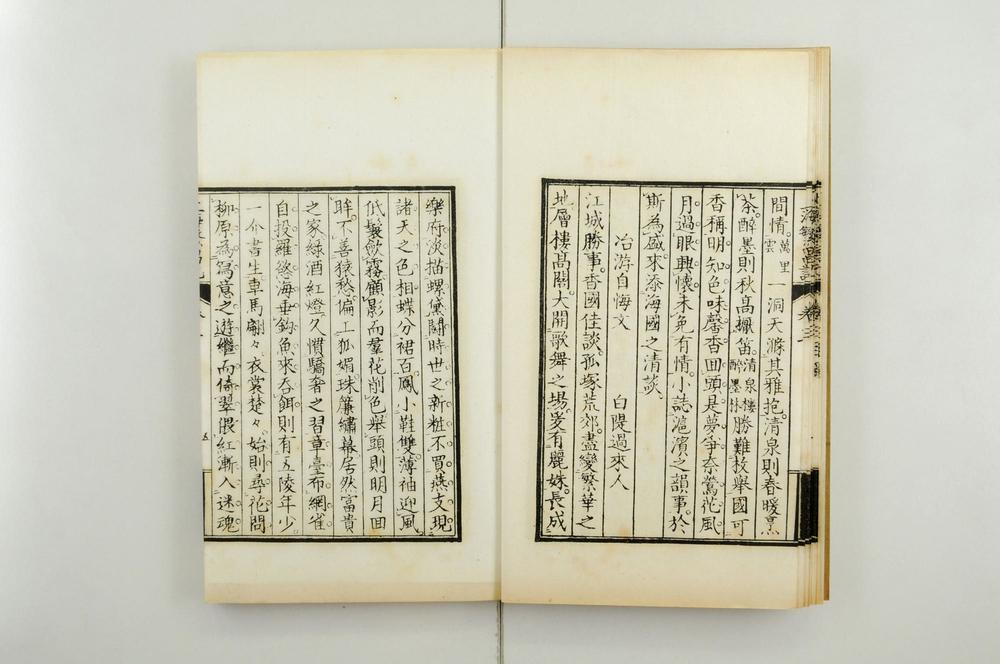 間情。萬里雲一洞天滌其雅抱。清泉則春暖烹
茶。醉墨則秋高撅笛。清泉樓醉墨林勝難枚舉國可
香稱明知色味馨香回頭是夢爭奈鶯花風
月過眼興懷未免有情。小誌滬濱之韻事。於
斯為盛。來添海國之清談。
冶游自悔文 白隄過來人
江城勝事。香國佳談。孤塚荒郊。盡變繁華之
地層樓高閣大開歌舞之場爰有麗姝。長成
樂府淡描螺黛鬪時世之新粧不買燕支現
諸天之色相蝶分裙百鳳小鞋雙薄袖迎風
低鬟斂霧顧影而羣花削色舉頭則明月回
眸。不善猿愁偏工狐媚珠簾繡幕居然富貴
之家綠酒紅燈久慣驕奢之習章臺布網雀
自投羅慾海垂鈎魚來吞餌則有五陵年少
一介書生車馬翩々衣裳楚々始則尋花問
柳原為寫意之遊繼而倚翠偎紅漸入迷魂